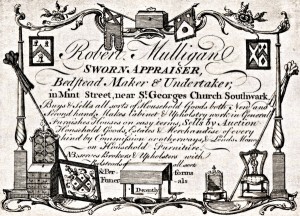 Robert Mulligan
SWORN APPRAISER,
Bedstead Maker & Undertaker,
in Mint Street, near St. Georges Church Southwark,
Buys & Sells all sorts of Household Goods both New and
Second hand, Makes Cabinet & Upholstry work in General
Furnishes Houses on easy terms, Sells by Auction
Household Goods, Estates & Merchandise of every
kind by Commission or otherways, & Lends Money
on Household Furniture.
NB. serves Brokers & Upholsters with
Goods all sorts
& Per forms
Funerals
Decently